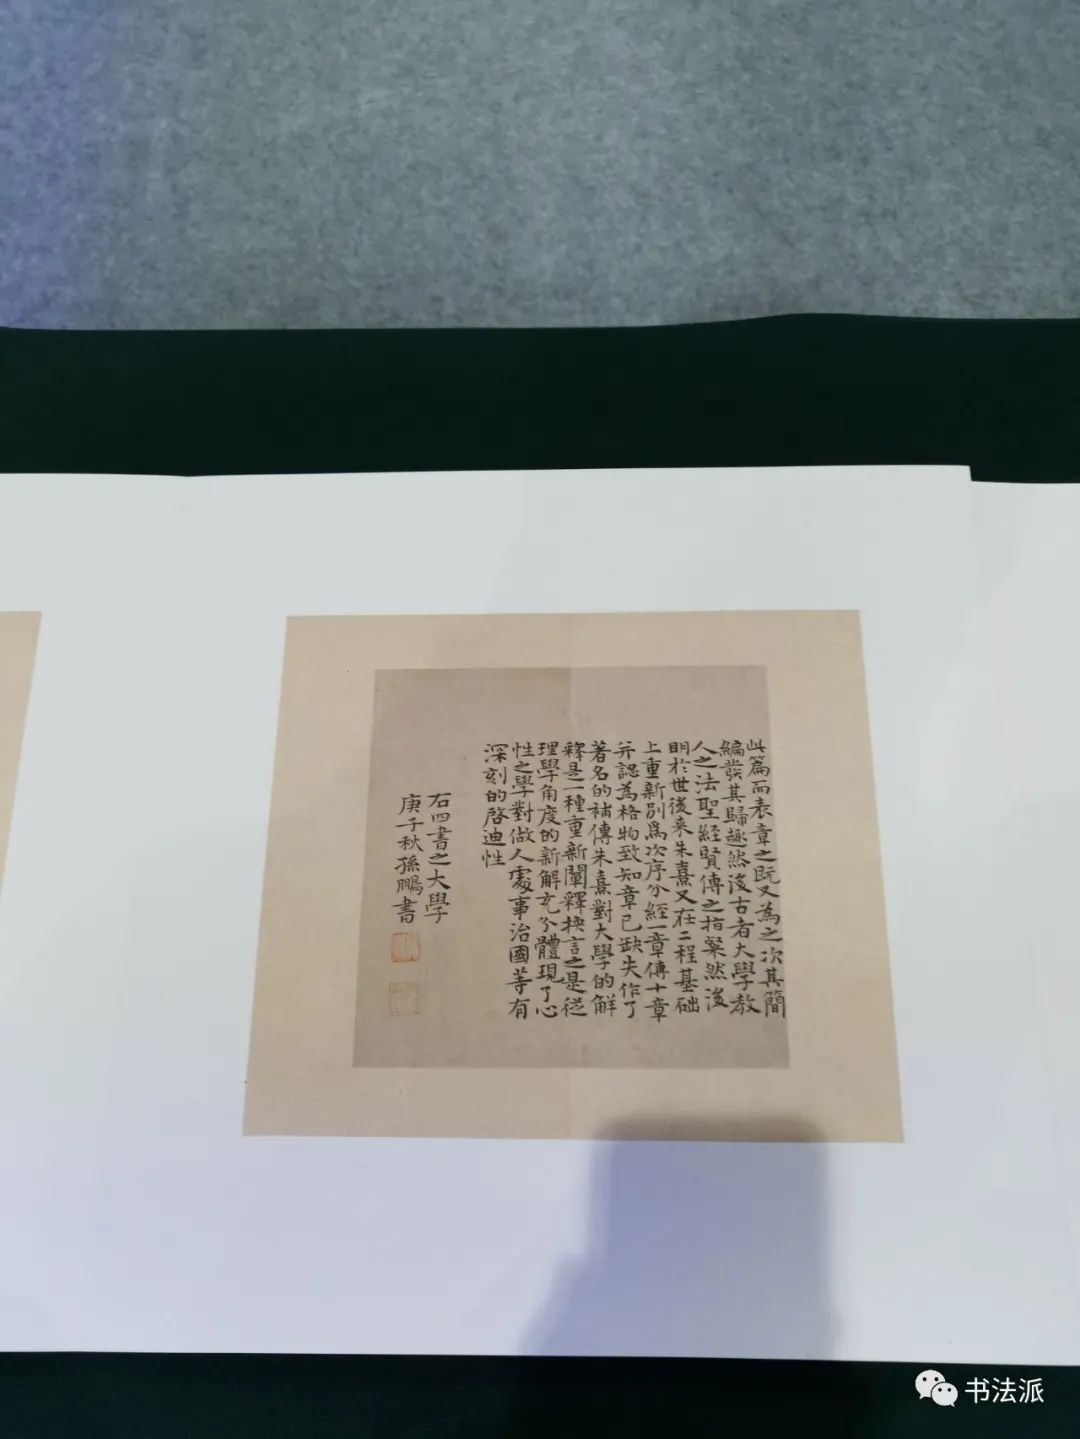 此篇而表章之既又為之次其簡
編發其歸趣然後古者大學教
人之法聖經賢傳之指粲然復
明於世後来朱熹又在二程基础
上重新别為次序分經一章傳十章
并認為格物致知章已缺失作了
著名的補傳朱熹對大學的解
釋是一種重新闡釋換言之是從
理學角度的新解充分體現了心
性之學對做人處事治國等有
深刻的啓迪性
右四書之大學
庚子秋孫鵬書
书法派